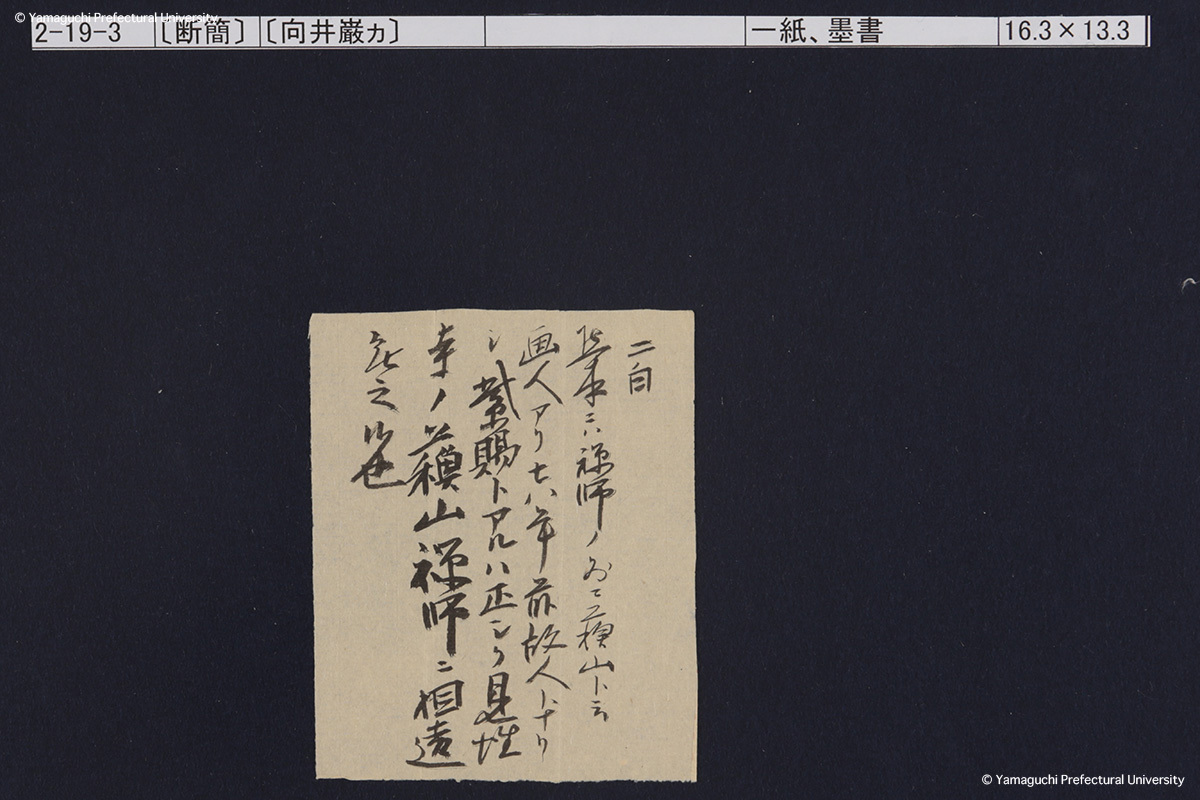 © Yamaguchi Prefectural University
2-19-3 〔断簡〕 〔向井巌カ〕 一紙、墨書 16.3×13.3
二白
ニハ禅師ノ外ニ薐山ト云
画人アリ七八年前故人トナリ
シ紫賜トアルハ正シク見性
寺ノ山禅師ニ相違
無之候也
© Yamaguchi Prefectural University